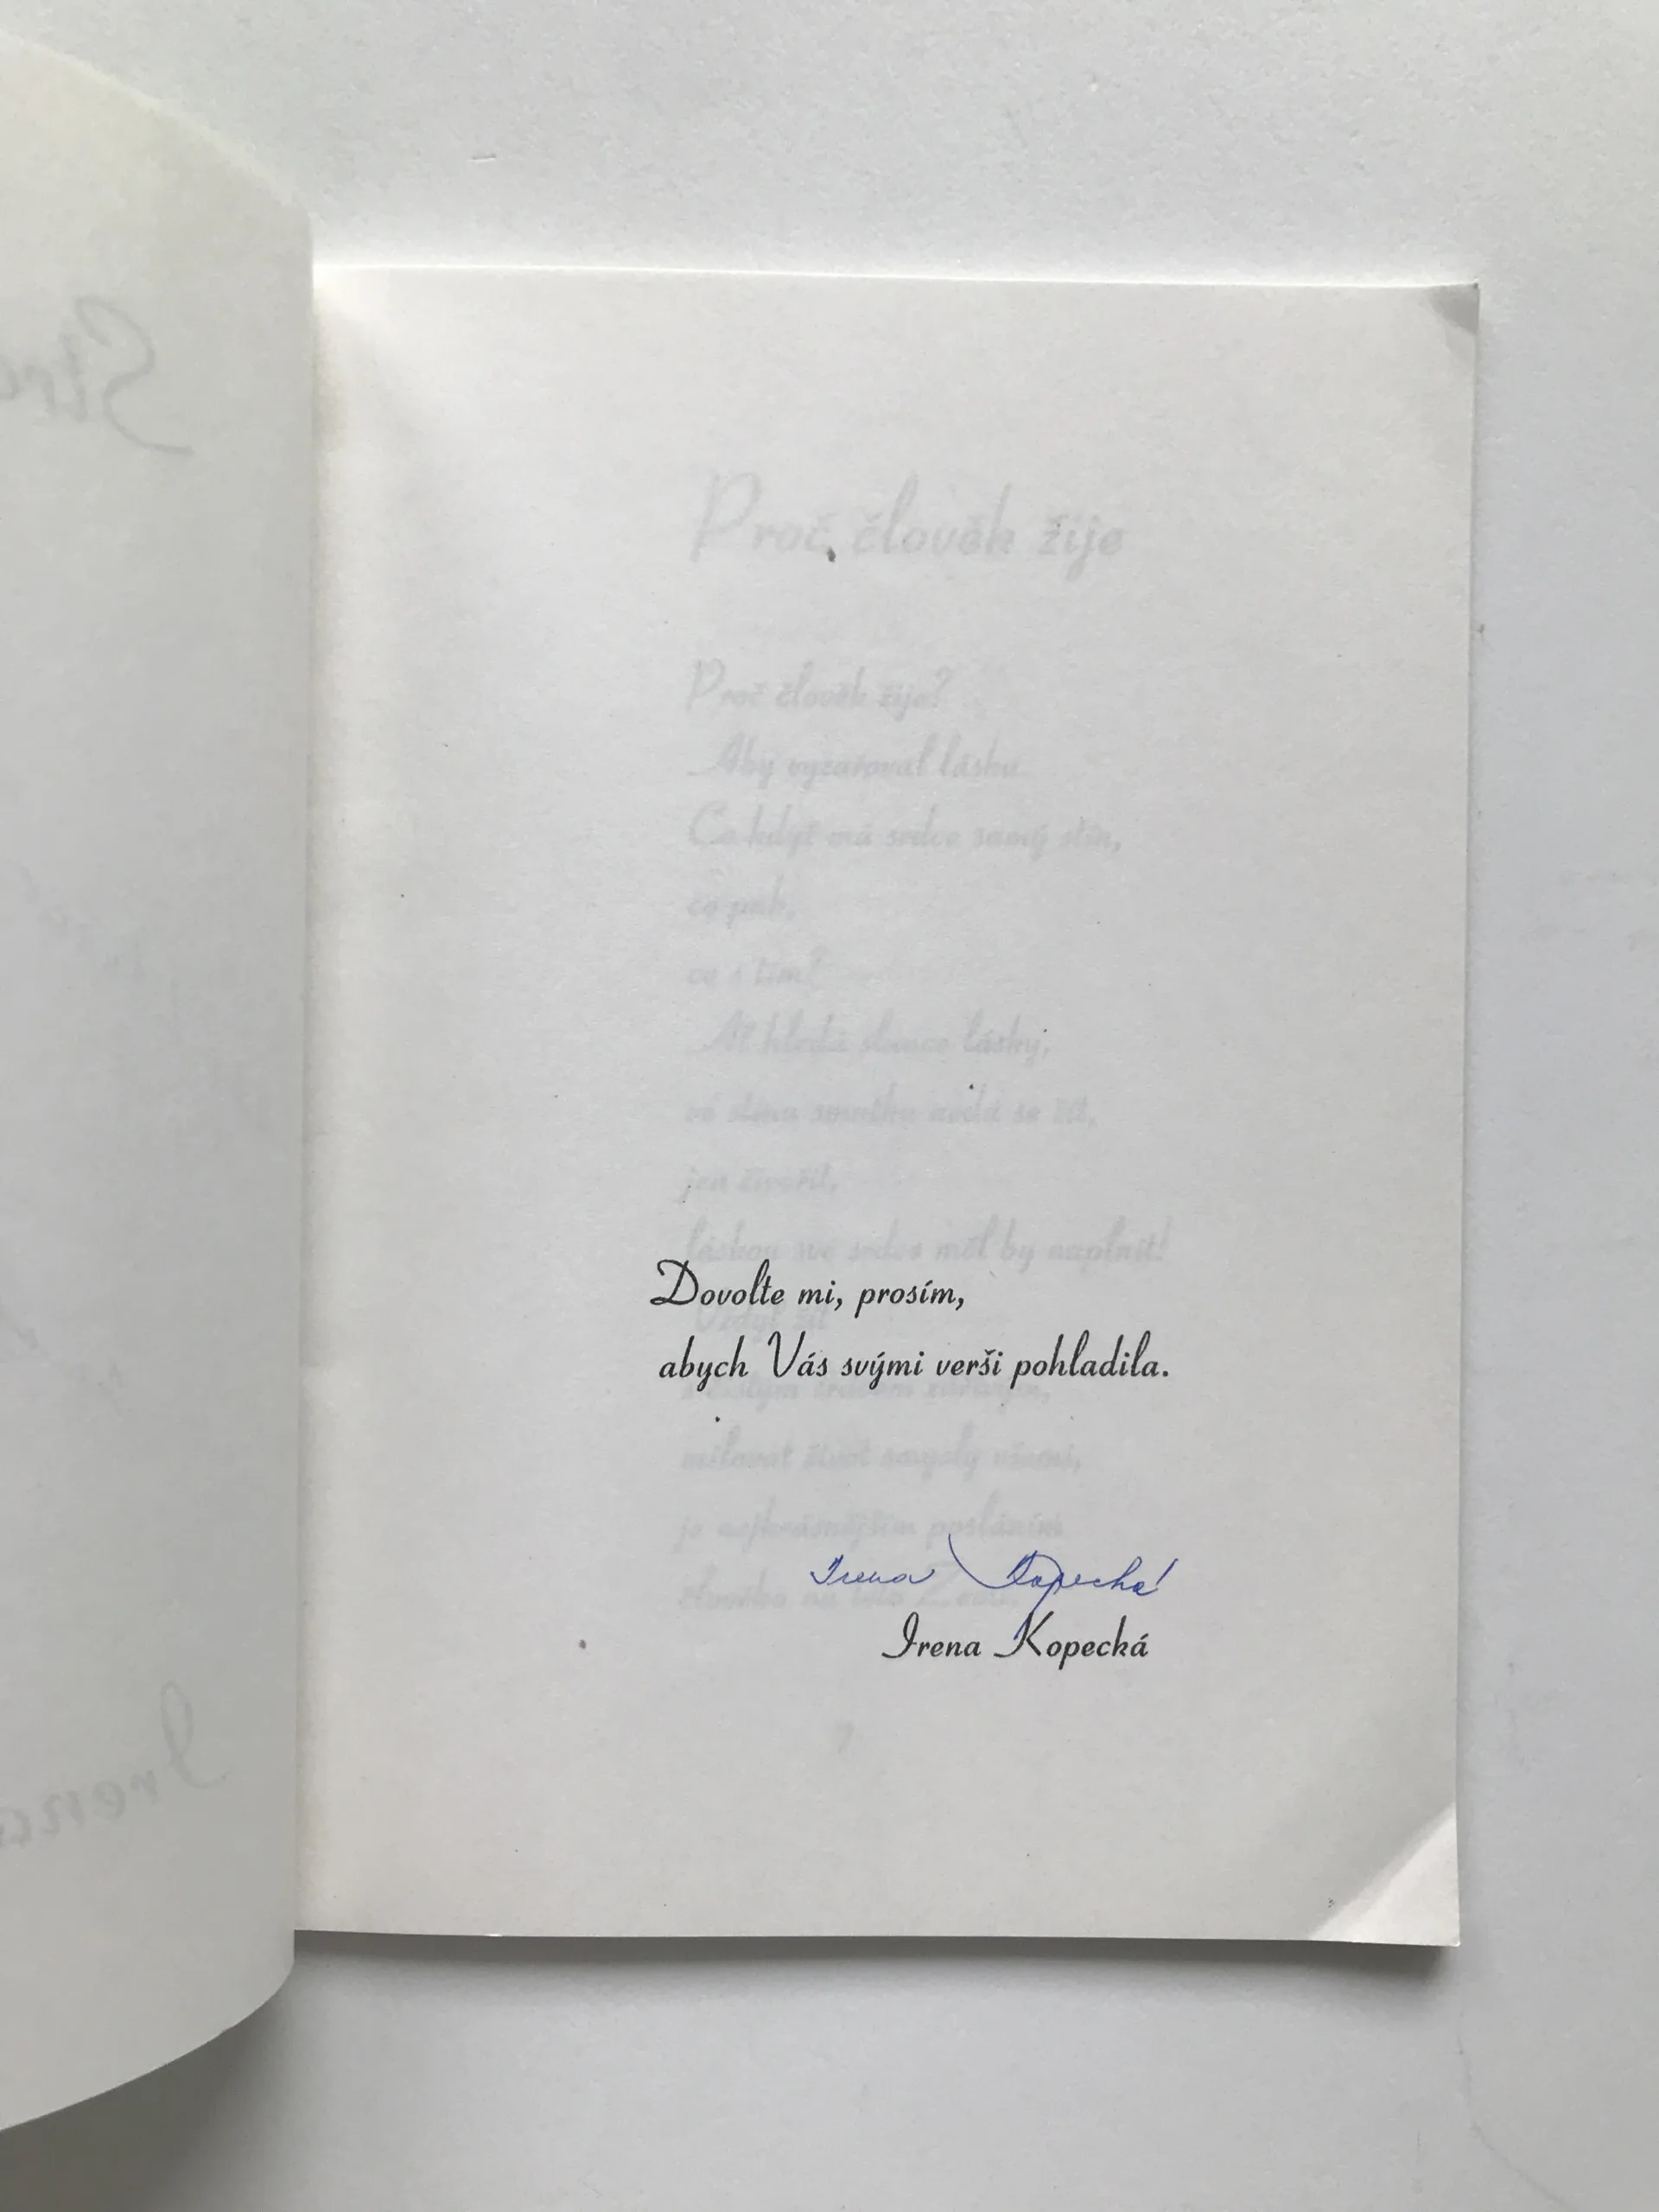 Stra
Irena
Proč člověk žije
Proč člověk žije?
Aby vyzařoval lásku.
Co když má srdce samý stín,
co pak,
co s tím?
Ať hledá slunce lásky,
ve stínu smutku nedá se žít,
jen živořit,
láskou své srdce měl by naplnit!
Dovolte mi, prosím,
Vždyť žít
abych Vás svými verši pohladila.
s čistým srdcem
milovat život smysly všemi,
je nejkrásnějším posláním
člověka na této Zemi.
Irena Kopecká
Irena Kopecká
7